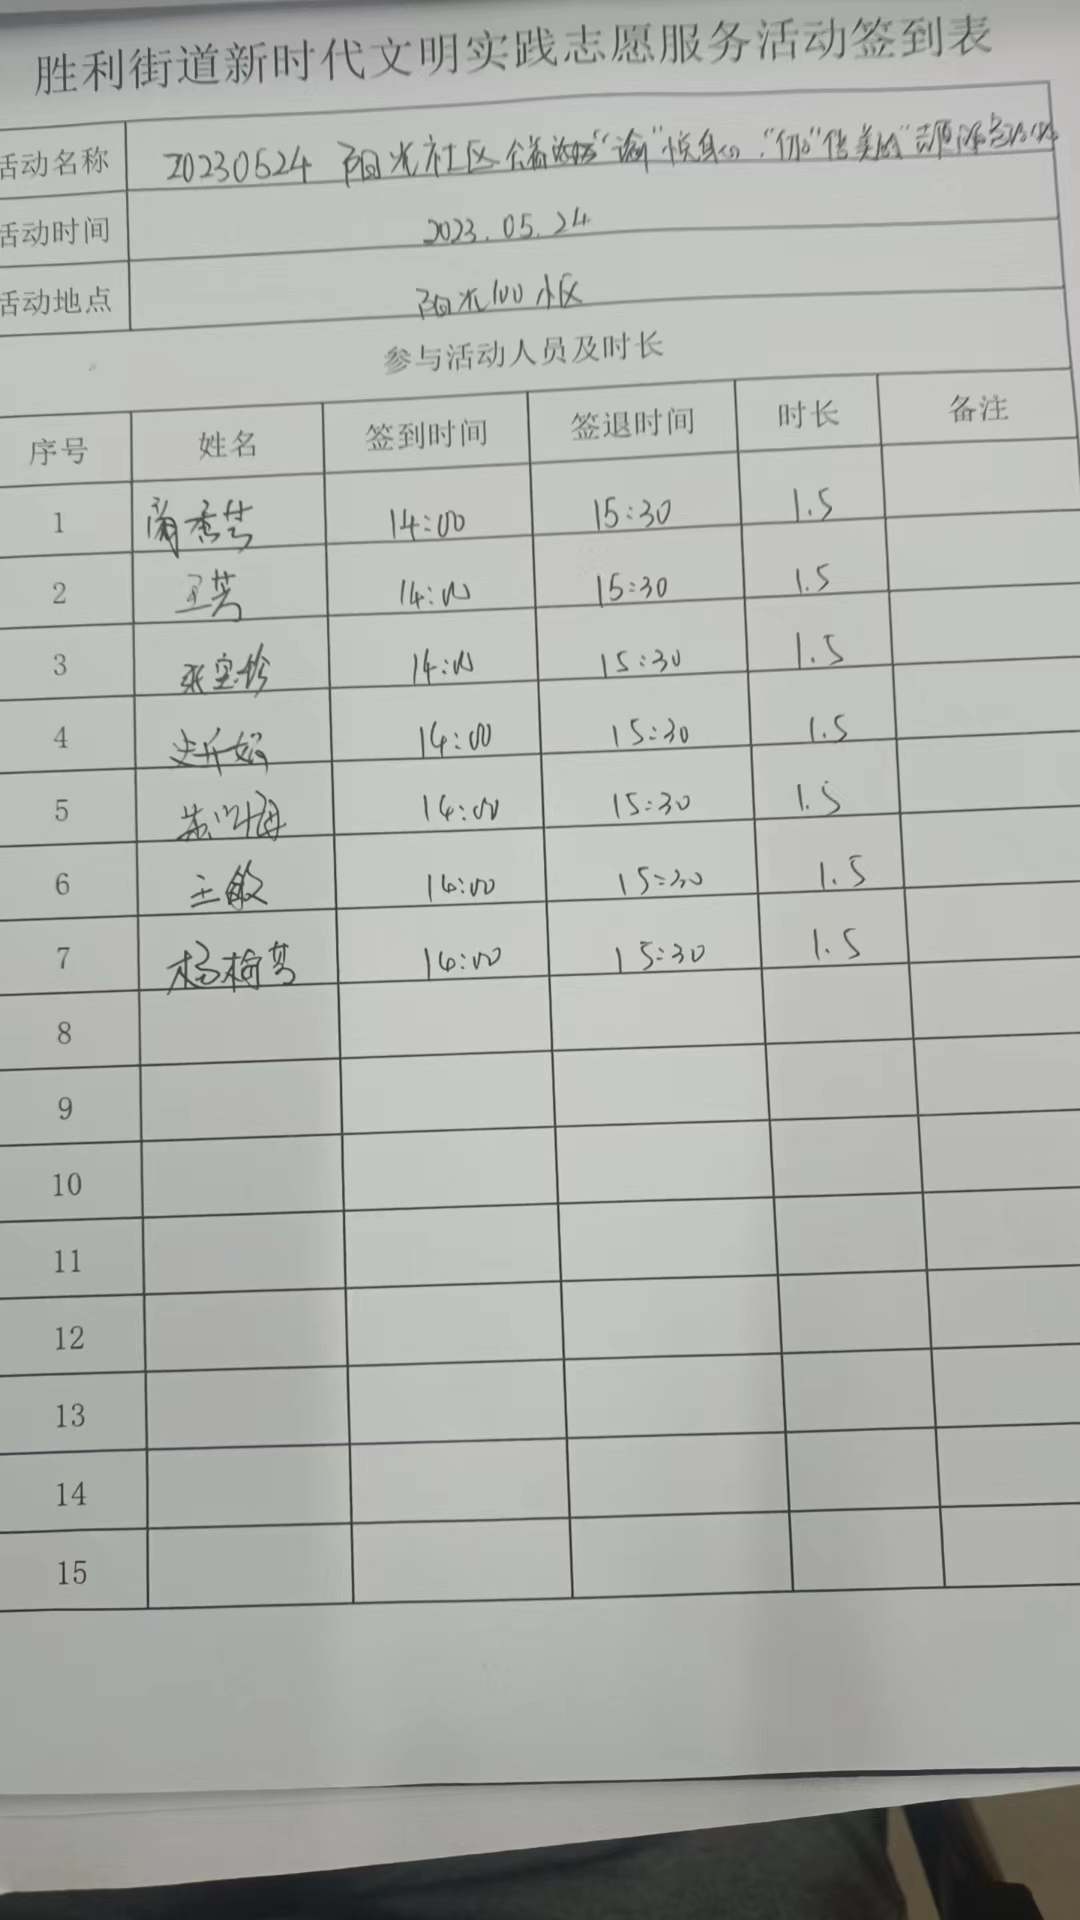 胜利街道新时代文明实践志愿服务活动签到表
活动名称 20230524 阳光社区公益 "瑜"悦身心,"伽"倍美丽
活动时间 2023.05.24
活动地点 阳光100小区
参与活动人员及时长
序号 姓名 签到时间 签退时间 时长 备注
1 14:00 15:30 1.5
2 王芳 14:00 15:30 1.5
3 张宝珍 14:00 15:30 1.5
4 14:00 15:30 1.5
5 14:00 15:30 1.5
6 王敏 14:00 15:30 1.5
7 14:00 15:30 1.5
8
9
10
11
12
13
14
15